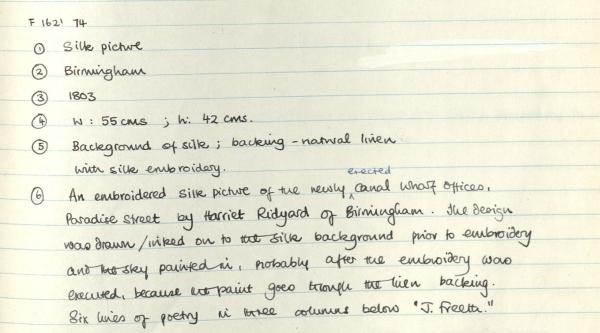 F 1621' 74
① Silk picture
② Birmingham
③ 1803
④ W : 55 cms ; h: 42 cms.
⑤ Background of silk ; backing - natural linen
with silk embroidery.
erected
⑥ An embroidered silk picture of the newly ^ canal wharf offices,
Paradise Street by Harriet Ridyard of Birmingham. The design
was drawn / inked on to the silk background prior to embroidery
and the sky painted in, probably after the embroidery was
executed, because the paint goes through the linen backing.
Six lines of poetry in three columns below "J. Freeth."